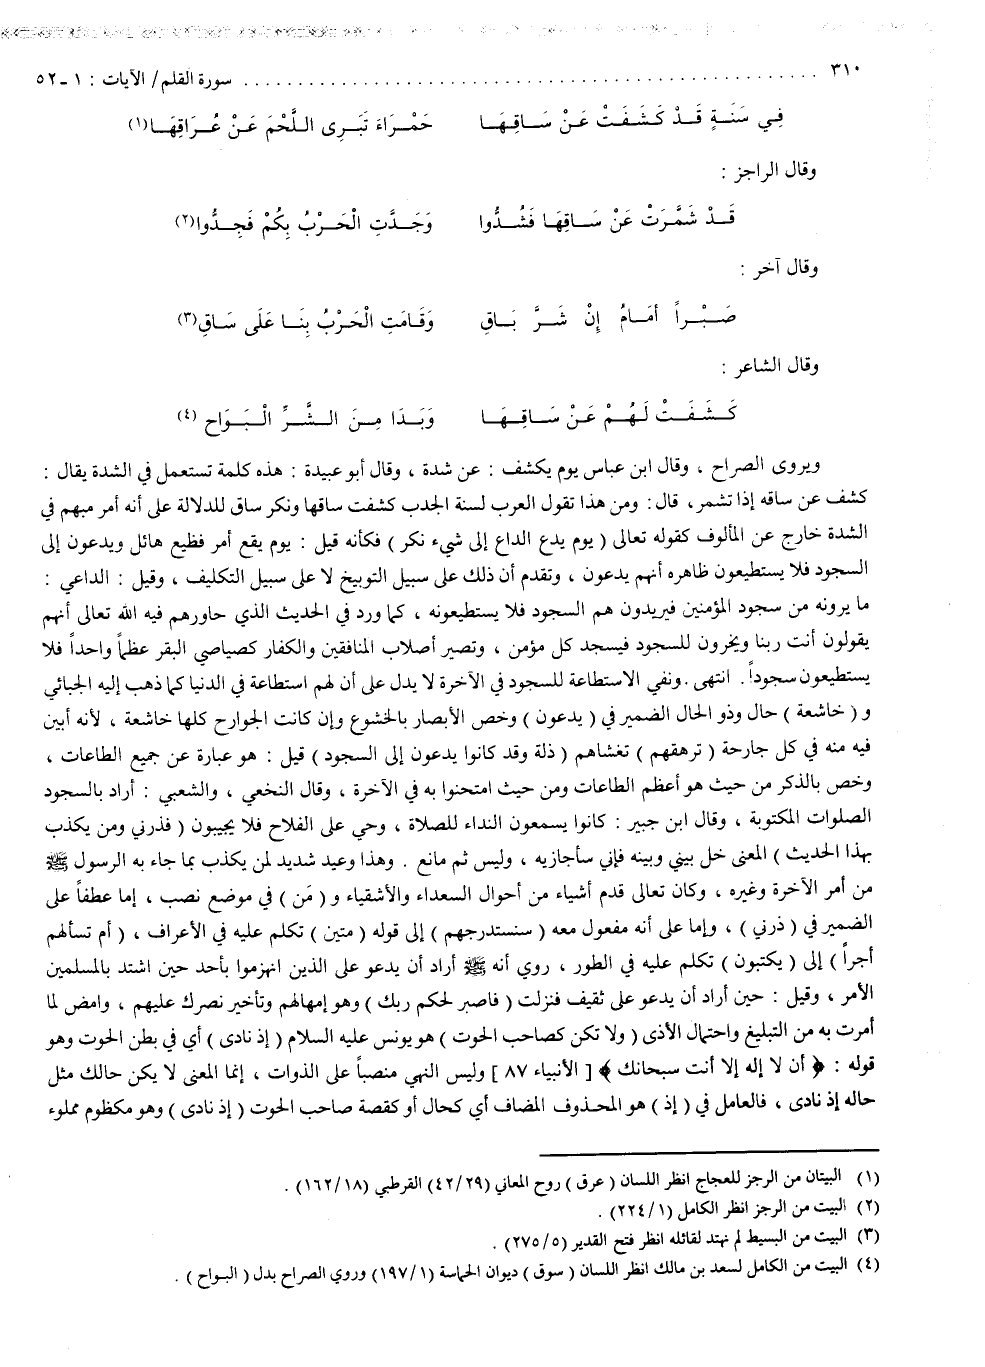 ٣١٠ ........................................................ سورة القلم/ الآيات : ١ -٥٢
فِي سَنَةٍ قَدْ كَشَفَتْ عَنْ سَاقِهَا حَمْرَاءَ تَبَرِى اللَّحْمَ عَنْ عُرَاقِهَا(١)
وقال الراجز :
قَدْ شَمَّرَتْ عَنْ سَاقِهَا فَشُدُّوا وَجَدَّتِ الْحَرْبُ بِكُمْ فَجِدُّوا(٢)
وقال آخر :
صَبْراً أمَامُ إنْ شَرَّ بَاقِ وَقَامَتِ الْحَرْبُ بِنَا عَلَى سَاقِ(٣)
وقال الشاعر :
كَشَفَتْ لَهُمْ عَنْ سَاقِهَا وَبَدَا مِنَ الشَّرِّ الْبَوَاح (٤)
ويروى الصراح ، وقال ابن عباس يوم يكشف : عن شدة ، وقال أبو عبيدة : هذه كلمة تستعمل في الشدة يقال :
كشف عن ساقه إذا تشمر، قال : ومن هذا تقول العرب لسنة الجدب كشفت ساقها ونكر ساق للدلالة على أنه أمر مبهم في
الشدة خارج عن المألوف كقوله تعالى ( يوم يدع الداع إلى شيء نكر ) فكأنه قيل : يوم يقع أمر فظيع هائل ويدعون إلى
السجود فلا يستطيعون ظاهره أنهم يدعون ، وتقدم أن ذلك على سبيل التوبيخ لا على سبيل التكليف ، وقيل : الداعي :
ما يرونه من سجود المؤمنين فيريدون هم السجود فلا يستطيعونه ، كما ورد في الحديث الذي حاورهم فيه الله تعالى أنهم
يقولون أنت ربنا ويخرون للسجود فيسجد كل مؤمن ، وتصير أصلاب المنافقين والكفار كصياصي البقر عظماً واحداً فلا
يستطيعون سجوداً. انتهى .ونفي الاستطاعة للسجود في الآخرة لا يدل على أن لهم استطاعة في الدنيا كما ذهب إليه الجبائي
و ( خاشعة ) حال وذو الحال الضمير في ( يدعون ) وخص الأبصار بالخشوع وإن كانت الجوارح كلها خاشعة ، لأنه أبين
فيه منه في كل جارحة ( ترهقهم ) تغشاهم ( ذلة وقد كانوا يدعون إلى السجود ) قيل : هو عبارة عن جميع الطاعات ،
وخص بالذكر من حيث هو أعظم الطاعات ومن حيث امتحنوا به في الآخرة ، وقال النخعي ، والشعبي : أراد بالسجود
الصلوات المكتوبة ، وقال ابن جبير : كانوا يسمعون النداء للصلاة ، وحي على الفلاح فلا يجيبون ( فذرني ومن يكذب
بهذا الحديث ) المعنى خل بيني وبينه فإني سأجازيه ، وليس ثم مانع . وهذا وعيد شديد لمن يكذب بما جاء به الرسول ﷺ
من أمر الآخرة وغيره ، وكان تعالى قدم أشياء من أحوال السعداء والأشقياء و ( مَن ) في موضع نصب ، إما عطفاً على
الضمير في ( ذرني ) ، وإما على أنه مفعول معه ( سنستدرجهم ) إلى قوله ( متين ) تكلم عليه في الأعراف ، ( أم تسألهم
أجراً ) إلى ( يكتبون ) تكلم عليه في الطور ، روي أنه ﷺ أراد أن يدعو على الذين انهزموا بأحد حين اشتد بالمسلمين
الأمر ، وقيل : حين أراد أن يدعو على ثقيف فنزلت ( فاصبر لحكم ربك ) وهو إمهالهم وتأخير نصرك عليهم ، وامض لما
أمرت به من التبليغ واحتمال الأذى ( ولا تكن كصاحب الحوت ) هو يونس عليه السلام ( إذ نادى ) أي في بطن الحوت وهو
قوله : ﴿ أن لا إله إلا أنت سبحانك ﴾ [ الأنبياء ٨٧ ] وليس النهي منصباً على الذوات ، إنما المعنى لا يكن حالك مثل
حاله إذ نادى ، فالعامل في ( إذ ) هو المحذوف المضاف أي كحال أو كقصة صاحب الحوت ( إذ نادى ) وهو مكظوم مملوء
(١) البيتان من الرجز للعجاج انظر اللسان ( عرق ) روح المعاني (٤٢/٢٩) القرطبي (١٦٢/١٨) .
(٢) البيت من الرجز انظر الكامل (٢٢٤/١) .
(٣) البيت من البسيط لم نهتد لقائله انظر فتح القدير (٢٧٥/٥) .
(٤) البيت من الكامل لسعد بن مالك انظر اللسان ( سوق ) ديوان الحماسة (١٩٧/١) وروي الصراح بدل ( البواح ) .